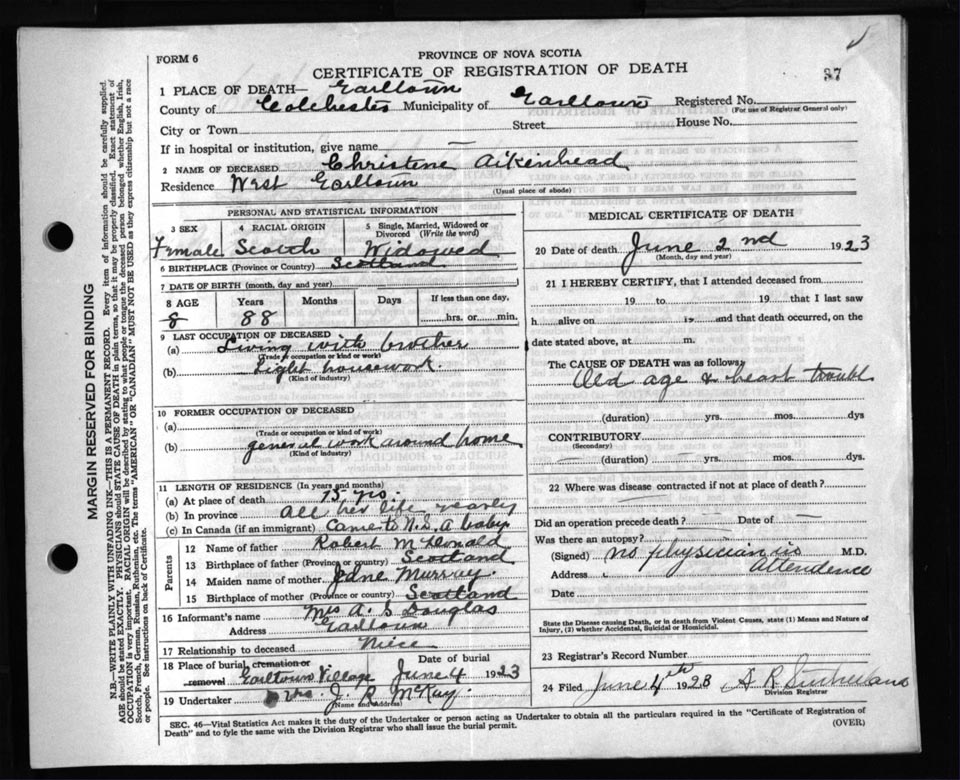 FORM 6
PROVINCE OF NOVA SCOTIA
CERTIFICATE OF REGISTRATION OF DEATH
37
1 PLACE OF DEATH— Earltown
County of Colchester Municipality of Earltown Registered No.
(For use of Registrar General only)
City or Town Street House No.
If in hospital or institution, give name —
2 NAME OF DECEASED Christene Aikenhead
Residence West Earltown
(Usual place of abode)
PERSONAL AND STATISTICAL INFORMATION
3 SEX 4 RACIAL ORIGIN 5 Single, Married, Widowed or Divorced (Write the word)
Female Scotch Widowed
6 BIRTHPLACE (Province or Country) Scotland
7 DATE OF BIRTH (month, day and year)
8 AGE Years Months Days If less than one day,
8 88 hrs. or min.
9 LAST OCCUPATION OF DECEASED
(a) Living with brother
(Trade or occupation or kind or work)
(b) Light housework.
(Kind of industry)
10 FORMER OCCUPATION OF DECEASED
(a)
(Trade or occupation or kind of work)
(b) general work around home
(Kind of industry)
11 LENGTH OF RESIDENCE (In years and months)
(a) At place of death 75 yrs.
(b) In province All her life nearly
(c) In Canada (if an immigrant) Came to N.S. A baby
Parents
12 Name of father Robert McDonald
13 Birthplace of father (Province or country) Scotland
14 Maiden name of mother Jane Murray.
15 Birthplace of mother (Province or country) Scotland
16 Informant's name Mrs A. S Douglas
Address Earltown
17 Relationship to deceased Niece
18 Place of burial, cremation or removal Date of burial
Earltown Village June 4 1923
19 Undertaker J. R McKay.
(Name and Address)
MEDICAL CERTIFICATE OF DEATH
20 Date of death June 2nd 1923
(Month, day and year)
21 I HEREBY CERTIFY, that I attended deceased from
19 to 19 that I last saw
h alive on 19 and that death occurred, on
date stated above, at m.
The CAUSE OF DEATH was as follows:
Old age & heart troubl
(duration) yrs. mos. dys
CONTRIBUTORY
(Secondary)
(duration) yrs. mos. dys.
22 Where was disease contracted if not at place of death?
Did an operation precede death? — Date of —
Was there an autopsy? —
(Signed) no physician in M.D.
attendence
Address
Date
State the Disease causing Death, or in death from Violent Causes, state (1) Means and Nature of
Injury, (2) whether Accidental, Suicidal or Homicidal.
23 Registrar's Record Number
24 Filed June 4th 1923 A R Sutherland
Division Registrar
SEC. 46—Vital Statistics Act makes it the duty of the Undertaker or person acting as Undertaker to obtain all the particulars required in the "Certificate of Registration of
Death" and to fyle the same with the Division Registrar who shall issue the burial permit. (OVER)
MARGIN RESERVED FOR BINDING
N.B.—WRITE PLAINLY WITH UNFADING INK—THIS IS A PERMANENT RECORD. Every item of information should be carefully supplied.
AGE should be stated EXACTLY. PHYSICIANS should STATE CAUSE OF DEATH in plain terms, so that it may be properly classified. Exact statement of
OCCUPATION is very important. RACIAL ORIGIN will be described by stating to what people or tongue the deceased person belonged whether English, Irish,
Scotch, French, German, Russian, Ruthenian, etc. The terms "AMERICAN" OR "CANADIAN" MUST NOT BE USED as they express citizenship but not a race
or people. See instructions on back of Certificate.